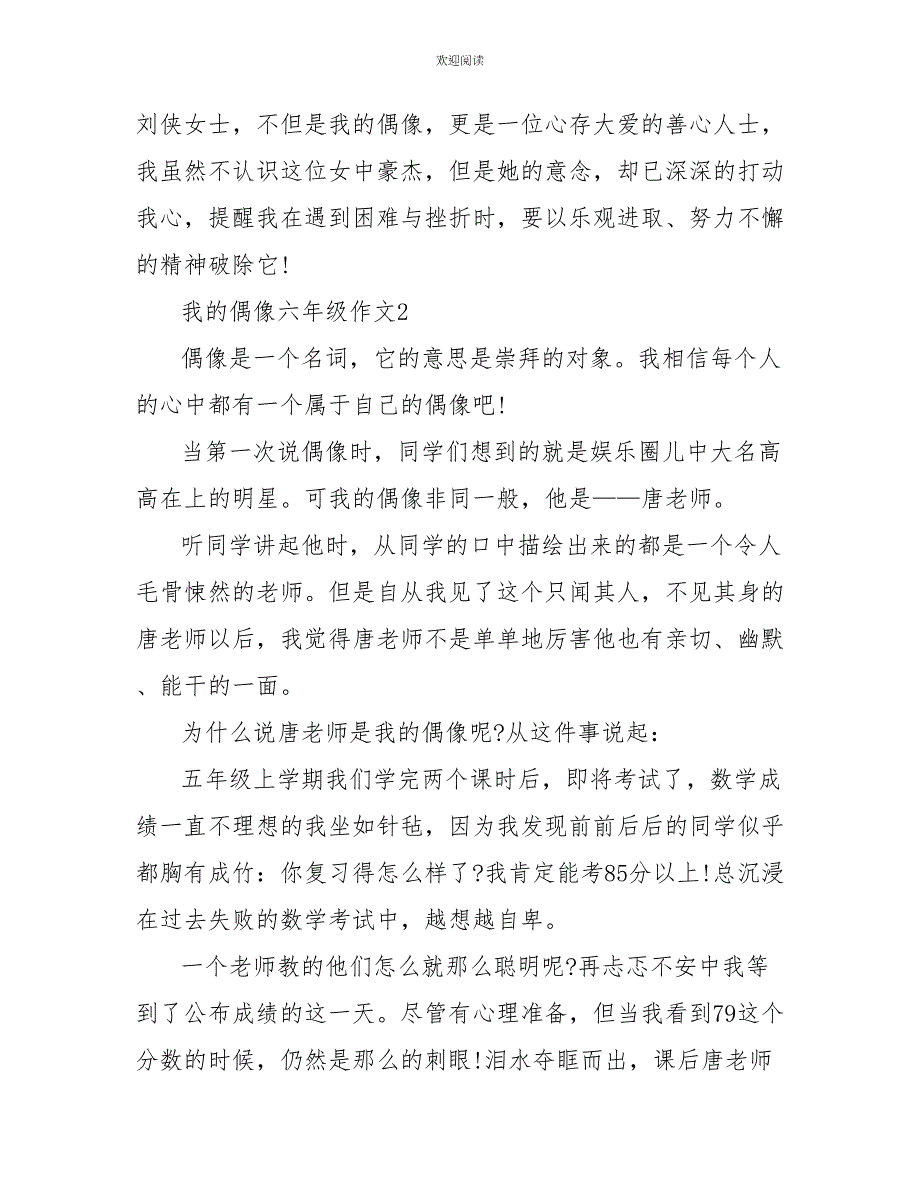 欢迎阅读
刘侠女士，不但是我的偶像，更是一位心存大爱的善心人士，
我虽然不认识这位女中豪杰，但是她的意念，却已深深的打动
我心，提醒我在遇到困难与挫折时，要以乐观进取、努力不懈
的精神破除它!
我的偶像六年级作文2
偶像是一个名词，它的意思是崇拜的对象。我相信每个人
的心中都有一个属于自己的偶像吧!
当第一次说偶像时，同学们想到的就是娱乐圈儿中大名高
高在上的明星。可我的偶像非同一般，他是——唐老师。
听同学讲起他时，从同学的口中描绘出来的都是一个令人
毛骨悚然的老师。但是自从我见了这个只闻其人，不见其身的
唐老师以后，我觉得唐老师不是单单地厉害他也有亲切、幽默
、能干的一面。
为什么说唐老师是我的偶像呢?从这件事说起：
五年级上学期我们学完两个课时后，即将考试了，数学成
绩一直不理想的我坐如针毡，因为我发现前前后后的同学似乎
都胸有成竹：你复习得怎么样了?我肯定能考85分以上!总沉浸
在过去失败的数学考试中，越想越自卑。
一个老师教的他们怎么就那么聪明呢?再忐忑不安中我等
到了公布成绩的这一天。尽管有心理准备，但当我看到79这个
分数的时候，仍然是那么的刺眼!泪水夺眶而出，课后唐老师